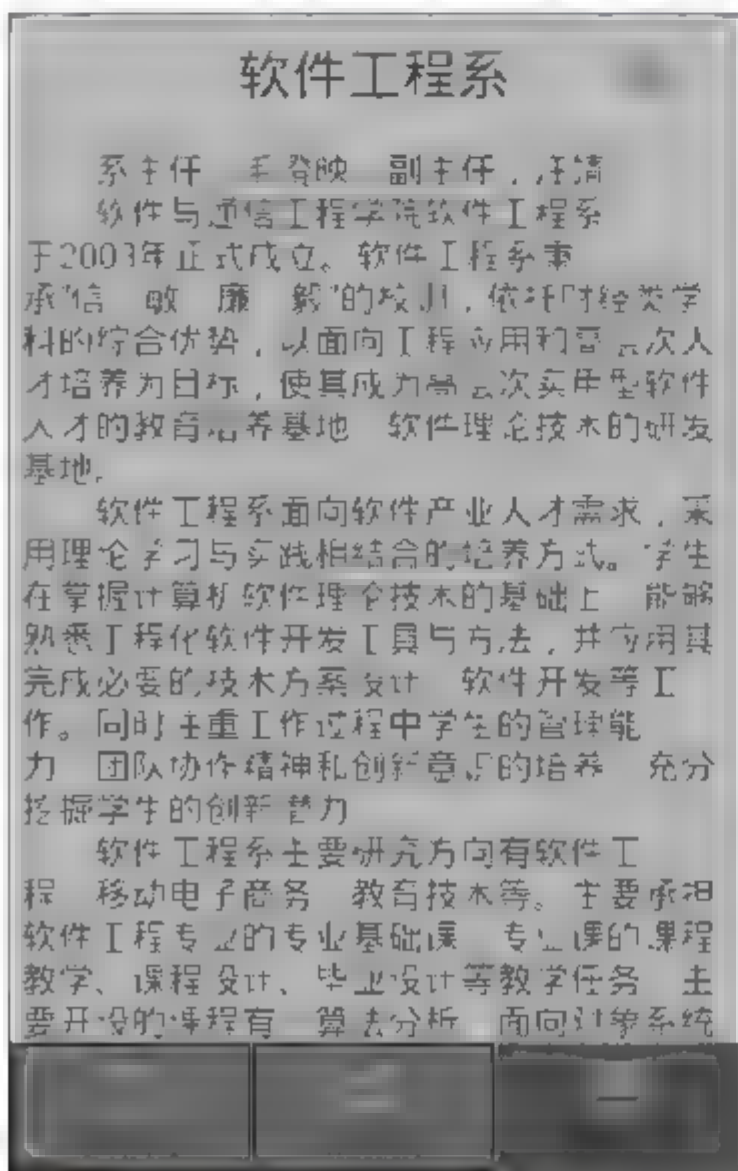 软件工程系
系主任 毛登映 副主任，汪清
软件与通信工程学院软件工程系
于2003年正式成立。软件工程系秉
承"信 敏 廉 毅"的校训，依托财经类学
科的综合优势，以面向工程应用和高层次人
才培养为目标，使其成为高层次实用型软件
人才的教育培养基地 软件理论技术的研发
基地。
软件工程系面向软件产业人才需求，采
用理论学习与实践相结合的培养方式。学生
在掌握计算机软件理论技术的基础上 能够
熟悉工程化软件开发工具与方法，并应用其
完成必要的技术方案设计 软件开发等工
作。同时注重工作过程中学生的管理能
力 团队协作精神和创新意识的培养 充分
挖掘学生的创新潜力
软件工程系主要研究方向有软件工
程 移动电子商务 教育技术等。主要承担
软件工程专业的专业基础课 专业课的课程
教学、课程设计、毕业设计等教学任务 主
要开设的课程有 算法分析 面向对象系统